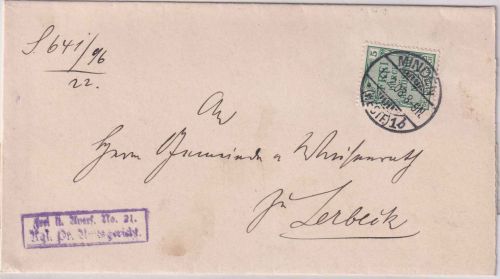 S 641/96
22.
5
MINDEN
(WESTF) 1b
An
Herrn Gemeinde a Waisenrath
zu Lerbeck
Frei lt. Avers. No. 21.
Kgl. Pr. Amtsgericht.